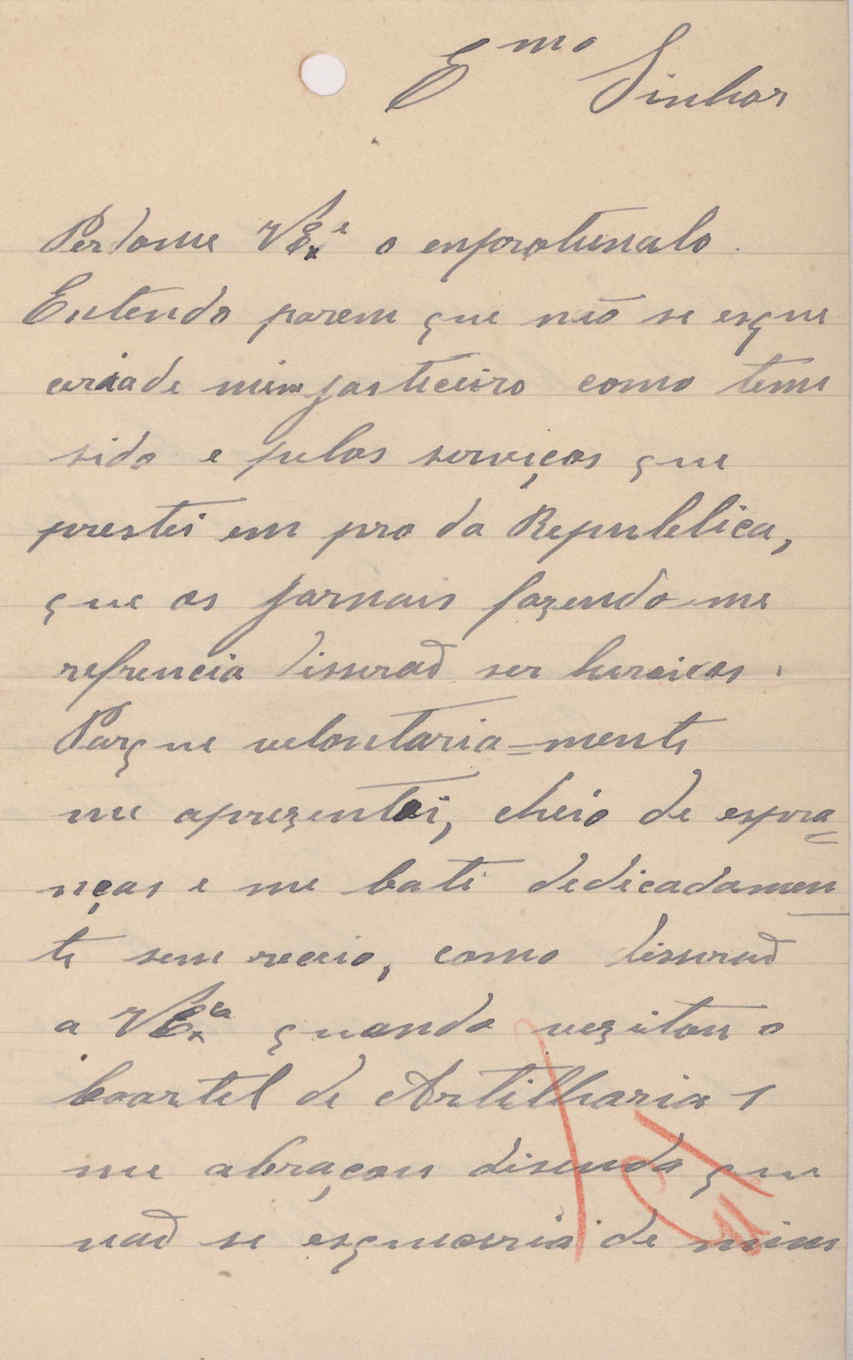 Emo Sinhor
Perdome VExª o enforotunalo.
Entendo porem que não se esque
ceria de mim justiceiro como teme
sido e pelos serviços que
prestei em pro da Republica,
que os jornais fazendo-me
refrencia disseraõ ser heroicos.
Porque velontaria=mente
me aprezentei, cheio de espera=
nças e me bati dedicadamen
te sem receio, como disseraõ
a VExcia quando vezitou o
coartel de Artilharia 1
me abraçou disendo que
naõ se esqueceria de mim